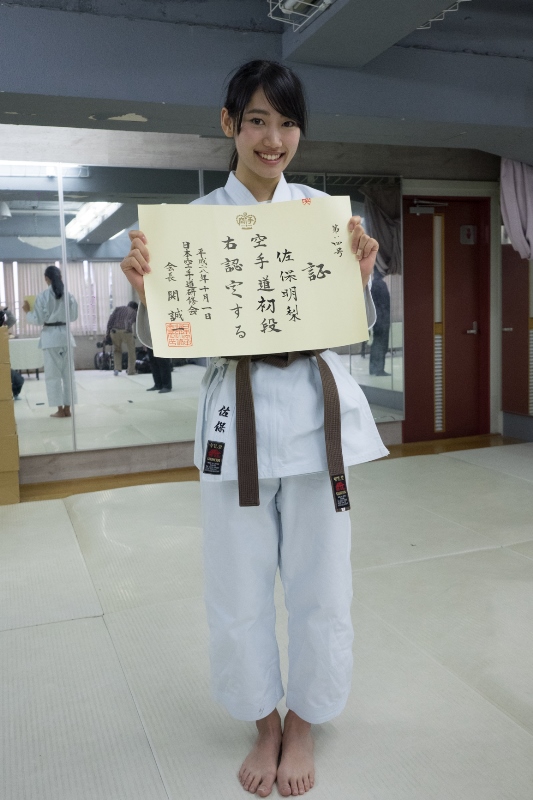 証
第一四号
佐保明梨
空手道初段
右認定する
平成二八年十月一日
日本空手道研修会
会長 関 誠一
佐保